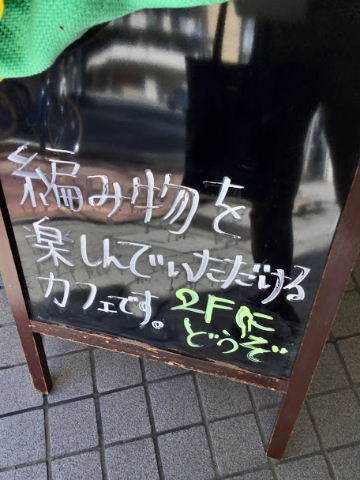 編み物を
楽しんでいただける
カフェです。
2Fに
どうぞ